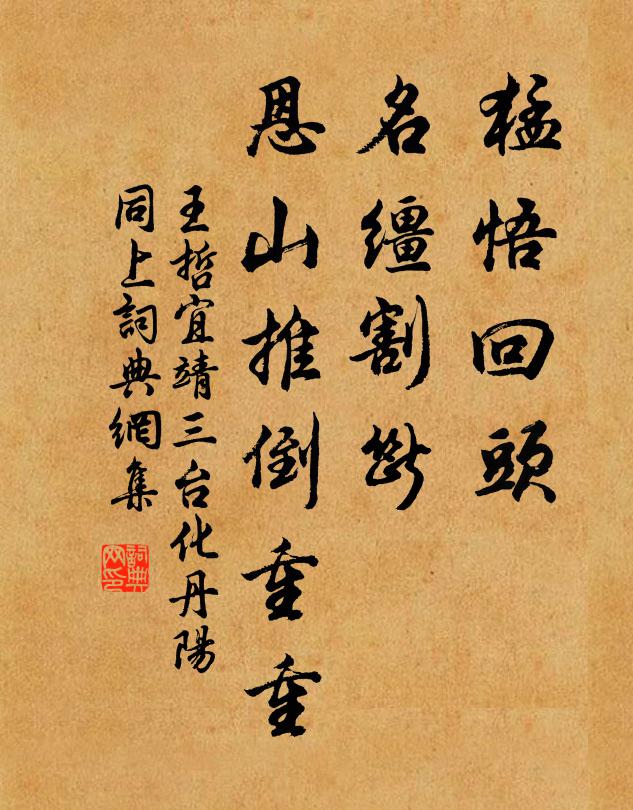 猛悟回頭
名缰割斷
恩山推倒重重
王哲宜靖三台化丹陽
同上詞典網集
詞典网印